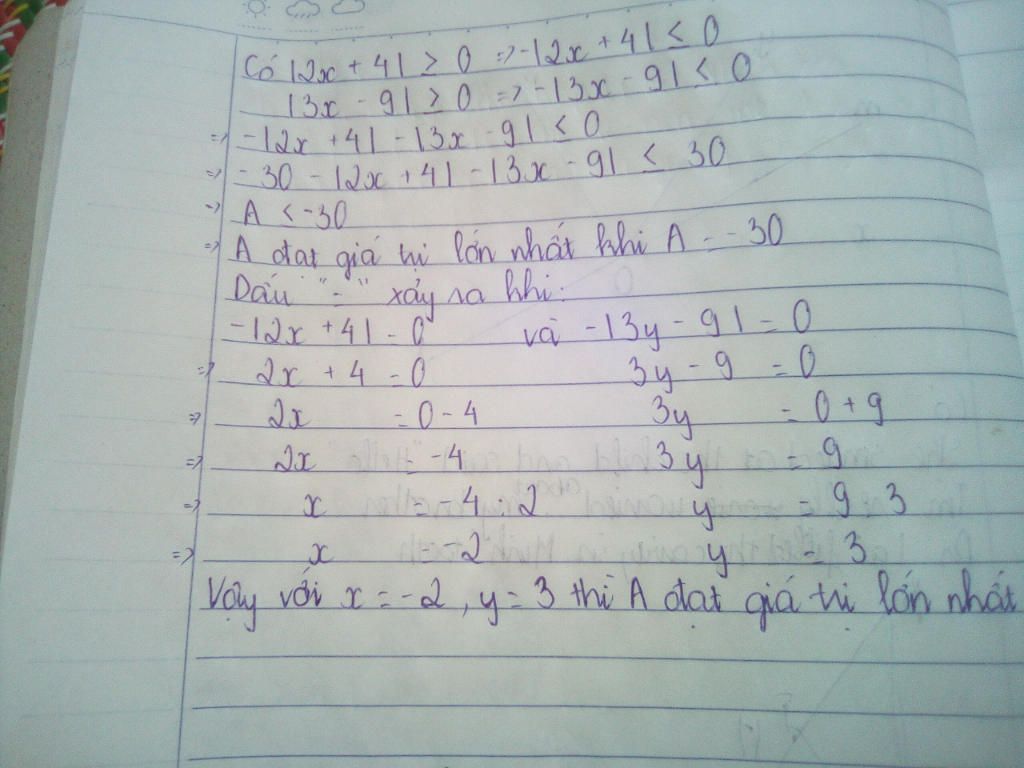 Có |2x + 4| ≥ 0 => -|2x + 4| ≤ 0
|3x - 9| ≥ 0 => -|3x - 9| ≤ 0
=> -|2x + 4| - |3x - 9| ≤ 0
=> -30 - |2x + 4| - |3x - 9| ≤ 30
=> A ≤ -30
=> A đạt giá trị lớn nhất khi A = -30
Dấu "=" xảy ra khi:
-|2x + 4| = 0 và -|3y - 9| = 0
=> 2x + 4 = 0 3y - 9 = 0
=> 2x = 0 - 4 3y = 0 + 9
=> 2x = -4 3y = 9
=> x = -4 : 2 y = 9 3
=> x = -2 y = 3
Vậy với x = -2, y = 3 thì A đạt giá trị lớn nhất